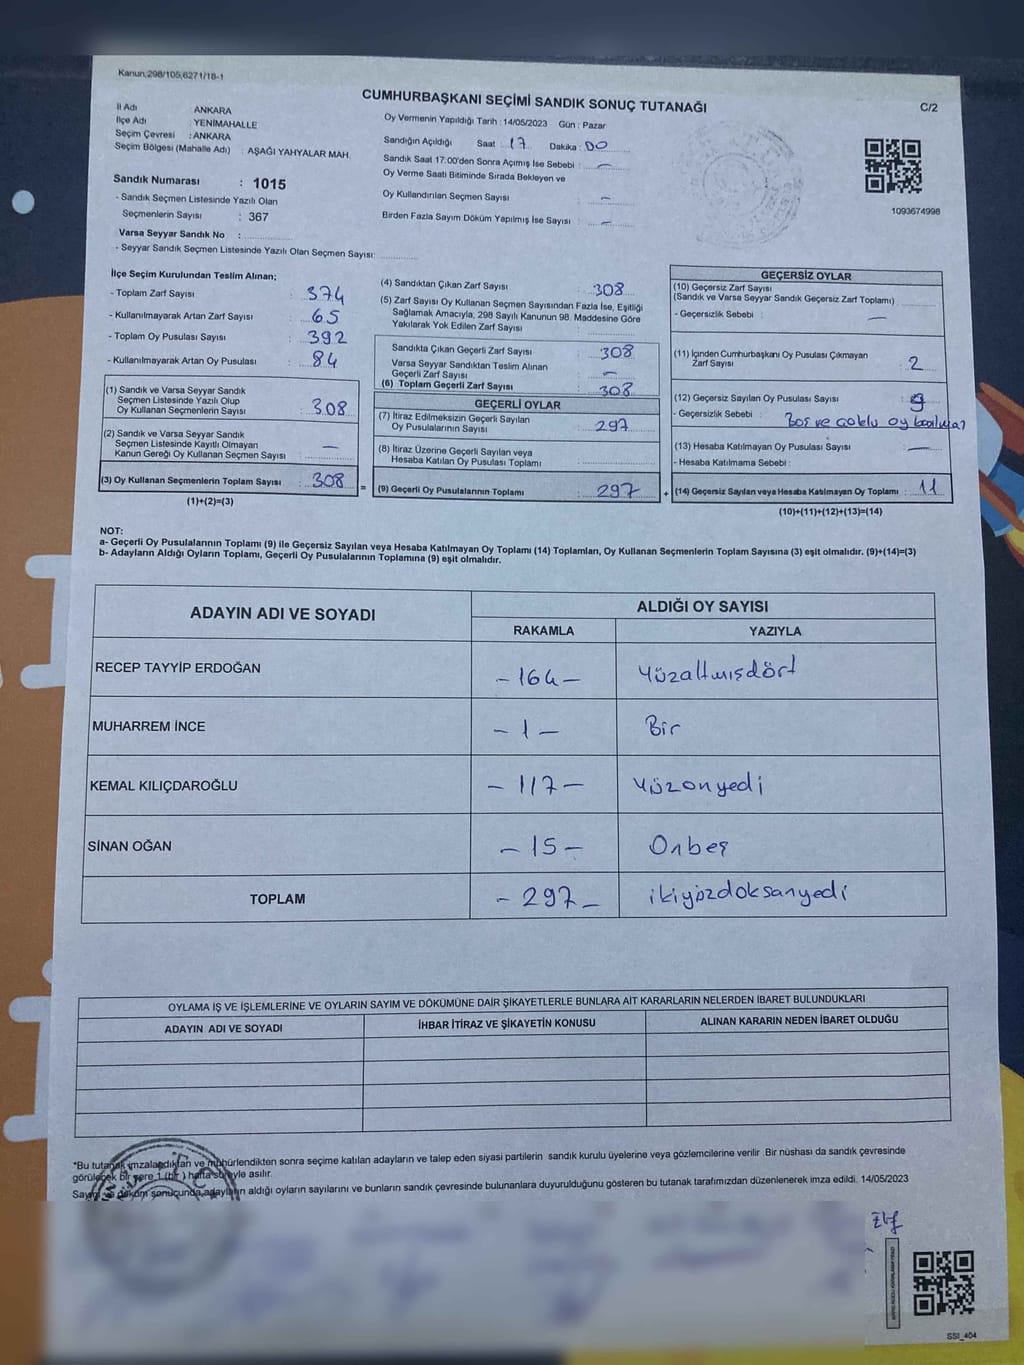 Kanun,298/105,6271/18-1
CUMHURBAŞKANI SEÇİMİ SANDIK SONUÇ TUTANAĞI
C/2
İl Adı : ANKARA
İlçe Adı : YENİMAHALLE
Seçim Çevresi : ANKARA
Seçim Bölgesi (Mahalle Adı) : AŞAĞI YAHYALAR MAH.
Sandık Numarası : 1015
- Sandık Seçmen Listesinde Yazılı Olan
Seçmenlerin Sayısı : 367
Varsa Seyyar Sandık No :
- Seyyar Sandık Seçmen Listesinde Yazılı Olan Seçmen Sayısı:
Oy Vermenin Yapıldığı Tarih : 14/05/2023 Gün : Pazar
Sandığın Açıldığı Saat : 17 Dakika : 00
Sandık Saat 17:00'den Sonra Açılmış İse Sebebi : —
Oy Verme Saati Bitiminde Sırada Bekleyen ve
Oy Kullandırılan Seçmen Sayısı : —
Birden Fazla Sayım Döküm Yapılmış İse Sayısı : —
1093674998
İlçe Seçim Kurulundan Teslim Alınan;
- Toplam Zarf Sayısı : 374
- Kullanılmayarak Artan Zarf Sayısı : 65
- Toplam Oy Pusulası Sayısı : 392
- Kullanılmayarak Artan Oy Pusulası : 84
(1) Sandık ve Varsa Seyyar Sandık
Seçmen Listesinde Yazılı Olup
Oy Kullanan Seçmenlerin Sayısı : 308
(2) Sandık ve Varsa Seyyar Sandık
Seçmen Listesinde Kayıtlı Olmayan
Kanun Gereği Oy Kullanan Seçmen Sayısı : —
(3) Oy Kullanan Seçmenlerin Toplam Sayısı : 308
(1)+(2)=(3)
(4) Sandıktan Çıkan Zarf Sayısı : 308
(5) Zarf Sayısı Oy Kullanan Seçmen Sayısından Fazla İse, Eşitliği
Sağlamak Amacıyla, 298 Sayılı Kanunun 98. Maddesine Göre
Yakılarak Yok Edilen Zarf Sayısı
Sandıkta Çıkan Geçerli Zarf Sayısı : 308
Varsa Seyyar Sandıktan Teslim Alınan
Geçerli Zarf Sayısı : —
(6) Toplam Geçerli Zarf Sayısı : 308
GEÇERLİ OYLAR
(7) İtiraz Edilmeksizin Geçerli Sayılan
Oy Pusulalarının Sayısı : 297
(8) İtiraz Üzerine Geçerli Sayılan veya
Hesaba Katılan Oy Pusulası Toplamı :
= (9) Geçerli Oy Pusulalarının Toplamı : 297 +
GEÇERSİZ OYLAR
(10) Geçersiz Zarf Sayısı
(Sandık ve Varsa Seyyar Sandık Geçersiz Zarf Toplamı)
- Geçersizlik Sebebi : —
(11) İçinden Cumhurbaşkanı Oy Pusulası Çıkmayan
Zarf Sayısı : 2
(12) Geçersiz Sayılan Oy Pusulası Sayısı : 9
- Geçersizlik Sebebi : Boş ve çoklu oy
(13) Hesaba Katılmayan Oy Pusulası Sayısı : —
- Hesaba Katılmama Sebebi :
(14) Geçersiz Sayılan veya Hesaba Katılmayan Oy Toplamı : 11
(10)+(11)+(12)+(13)=(14)
NOT:
a- Geçerli Oy Pusulalarının Toplamı (9) ile Geçersiz Sayılan veya Hesaba Katılmayan Oy Toplamı (14) Toplamları, Oy Kullanan Seçmenlerin Toplam Sayısına (3) eşit olmalıdır. (9)+(14)=(3)
b- Adayların Aldığı Oyların Toplamı, Geçerli Oy Pusulalarının Toplamına (9) eşit olmalıdır.
ADAYIN ADI VE SOYADI
ALDIĞI OY SAYISI
RAKAMLA YAZIYLA
RECEP TAYYİP ERDOĞAN -164- Yüzaltmışdört
MUHARREM İNCE -1- Bir
KEMAL KILIÇDAROĞLU -117- Yüzonyedi
SİNAN OĞAN -15- Onbeş
TOPLAM -297- ikiyüzdoksanyedi
OYLAMA İŞ VE İŞLEMLERİNE VE OYLARIN SAYIM VE DÖKÜMÜNE DAİR ŞİKAYETLERLE BUNLARA AİT KARARLARIN NELERDEN İBARET BULUNDUKLARI
ADAYIN ADI VE SOYADI İHBAR İTİRAZ VE ŞİKAYETİN KONUSU ALINAN KARARIN NEDEN İBARET OLDUĞU
*Bu tutanak imzalandıktan ve mühürlendikten sonra seçime katılan adayların ve talep eden siyasi partilerin sandık kurulu üyelerine veya gözlemcilerine verilir. Bir nüshası da sandık çevresinde
görülecek bir yere 1 (bir) hafta süreyle asılır.
Sayım ve döküm sonucunda adayların aldığı oyların sayılarını ve bunların sandık çevresinde bulunanlara duyurulduğunu gösteren bu tutanak tarafımızdan düzenlenerek imza edildi. 14/05/2023
SSI_404